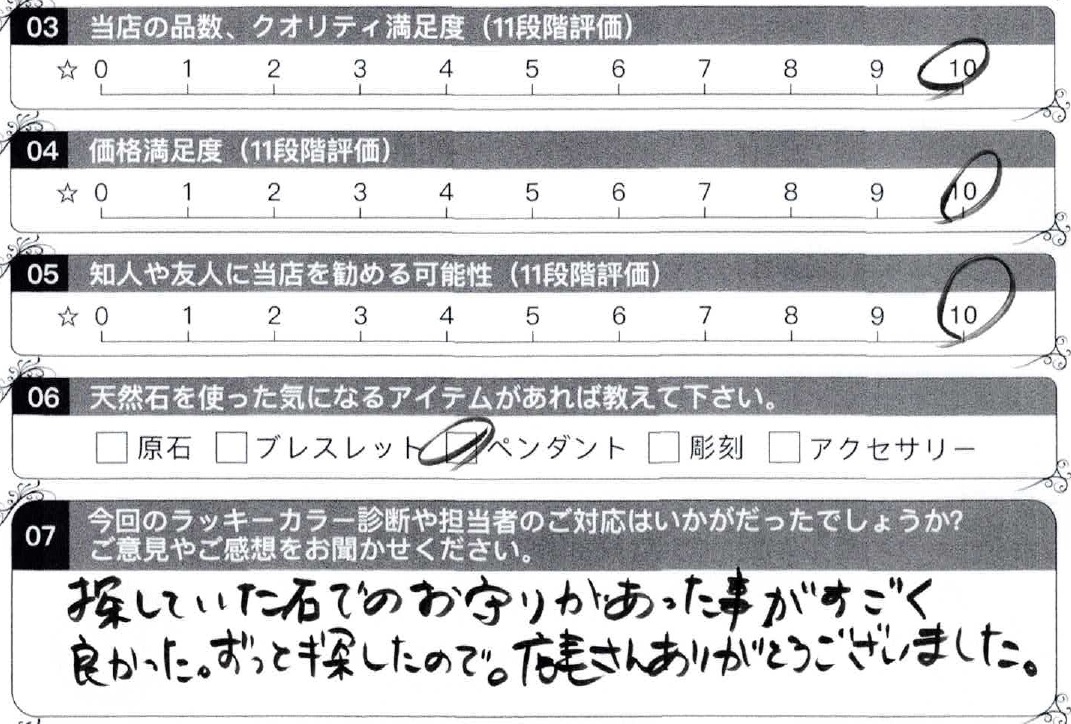 03 当店の品数、クオリティ満足度（11段階評価）
☆ 0 1 2 3 4 5 6 7 8 9 10
04 価格満足度（11段階評価）
☆ 0 1 2 3 4 5 6 7 8 9 10
05 知人や友人に当店を勧める可能性（11段階評価）
☆ 0 1 2 3 4 5 6 7 8 9 10
06 天然石を使った気になるアイテムがあれば教えて下さい。
□ 原石 □ ブレスレット □ ペンダント □ 彫刻 □ アクセサリー
07 今回のラッキーカラー診断や担当者のご対応はいかがだったでしょうか?
ご意見やご感想をお聞かせください。
探していた石でのお守りがあった事がすごく
良かった。ずっと探したので。店長さんありがとうございました。